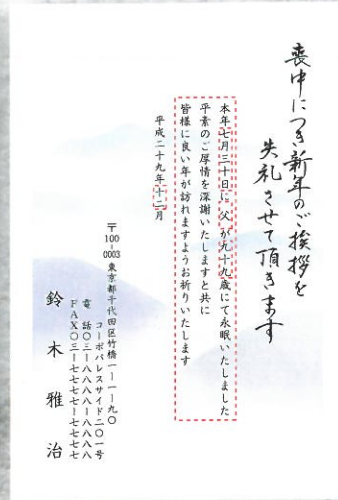 喪中につき新年のご挨拶を
失礼させて頂きます
本年七月三十日に 父 が九十九歳にて永眠いたしました
平素のご厚情を深謝いたしますと共に
皆様に良い年が訪れますようお祈りいたします
平成二十九年十二月
〒100-0003
東京都千代田区竹橋一-一-九〇
コーポパレスサイド二〇一号
電 話〇三-八八八八-八八八八
FAX〇三-七七七七-七七七七
鈴木雅治